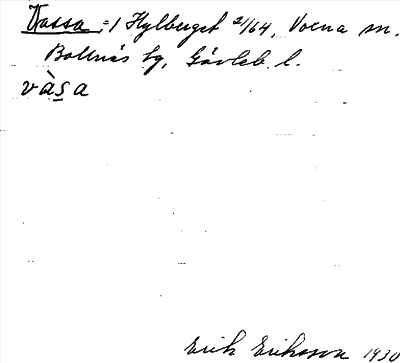 Vassa =/ Hylberget 2/64, Voxna sn.
Bollnäs tg, Gävleb. l.
vàs̲a
Erik Eriksson 1930